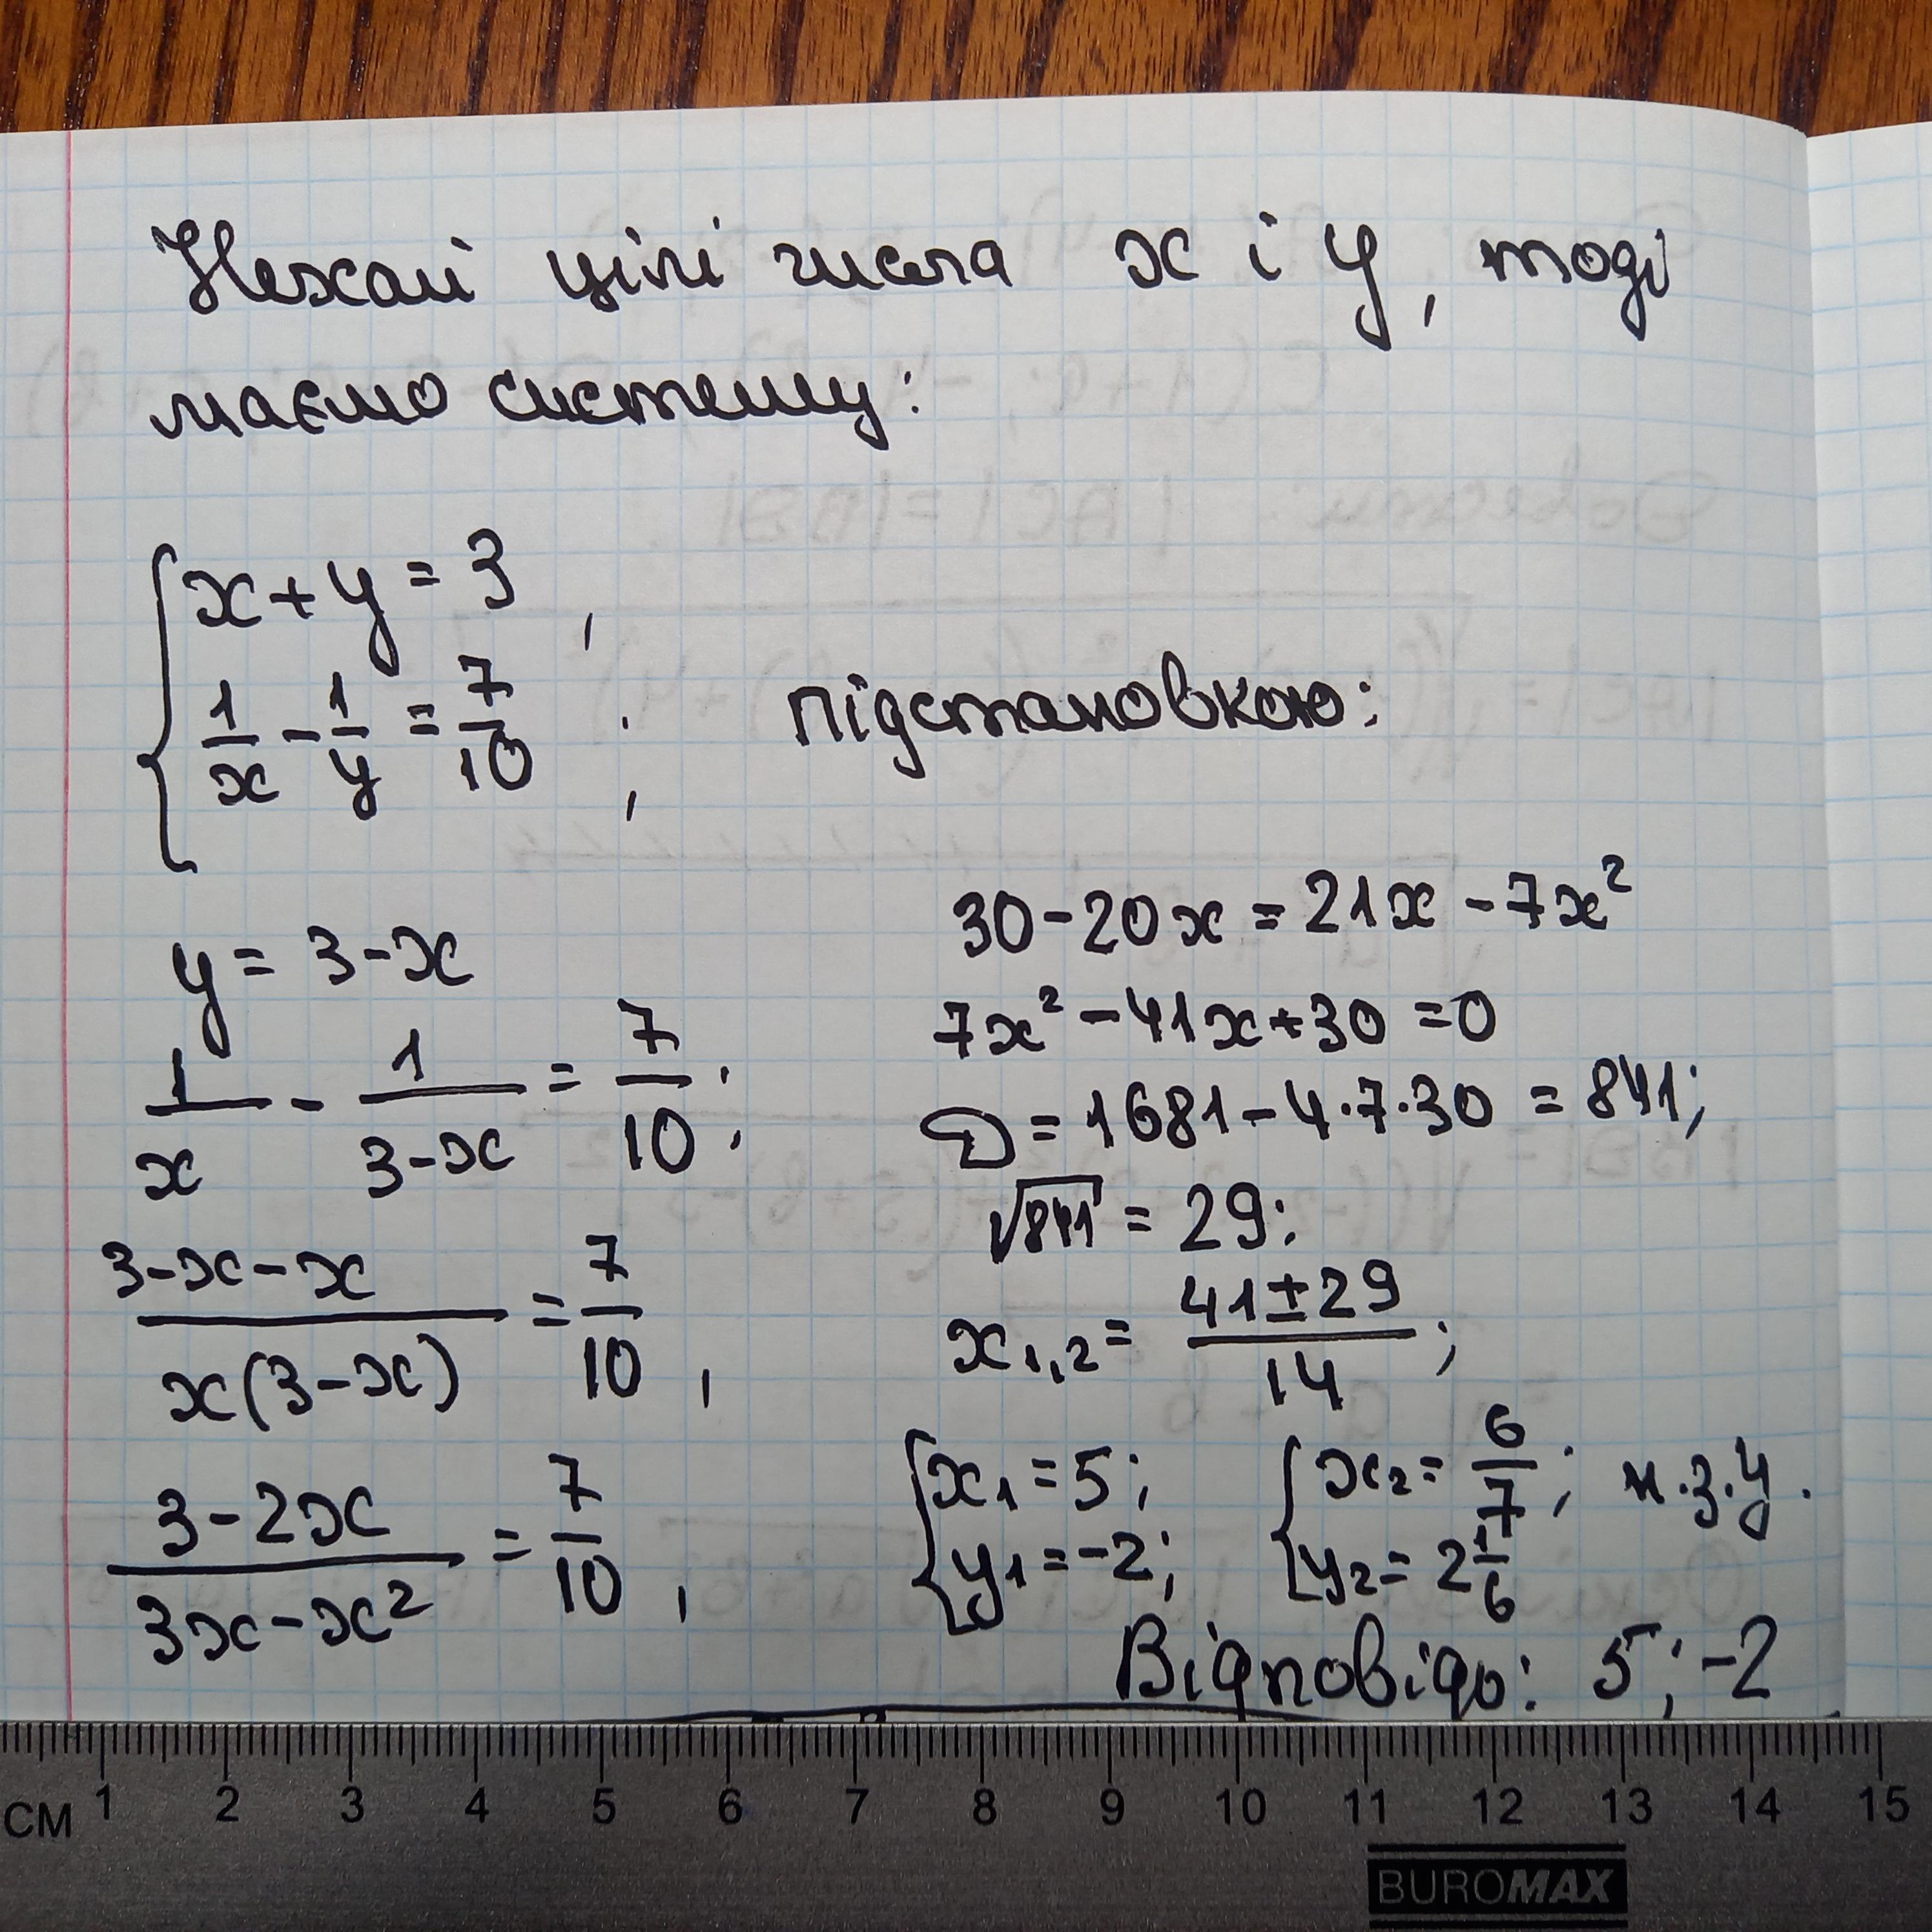 Нехай цілі числа x і y, тоді
маємо систему:
x+y=3,
1/x - 1/y = 7/10;
підстановкою:
y = 3-x
1/x - 1/(3-x) = 7/10;
(3-x-x)/(x(3-x)) = 7/10,
(3-2x)/(3x-x²) = 7/10,
30-20x = 21x-7x²
7x²-41x+30=0
D=1681-4·7·30=841;
√841 = 29;
x1,2 = (41±29)/14;
x1=5; x2=6/7; н.з.у.
y1=-2; y2=2 1/6
Відповідь: 5; -2
СМ 1 2 3 4 5 6 7 8 9 10 11 12 13 14 15
BUROMAX